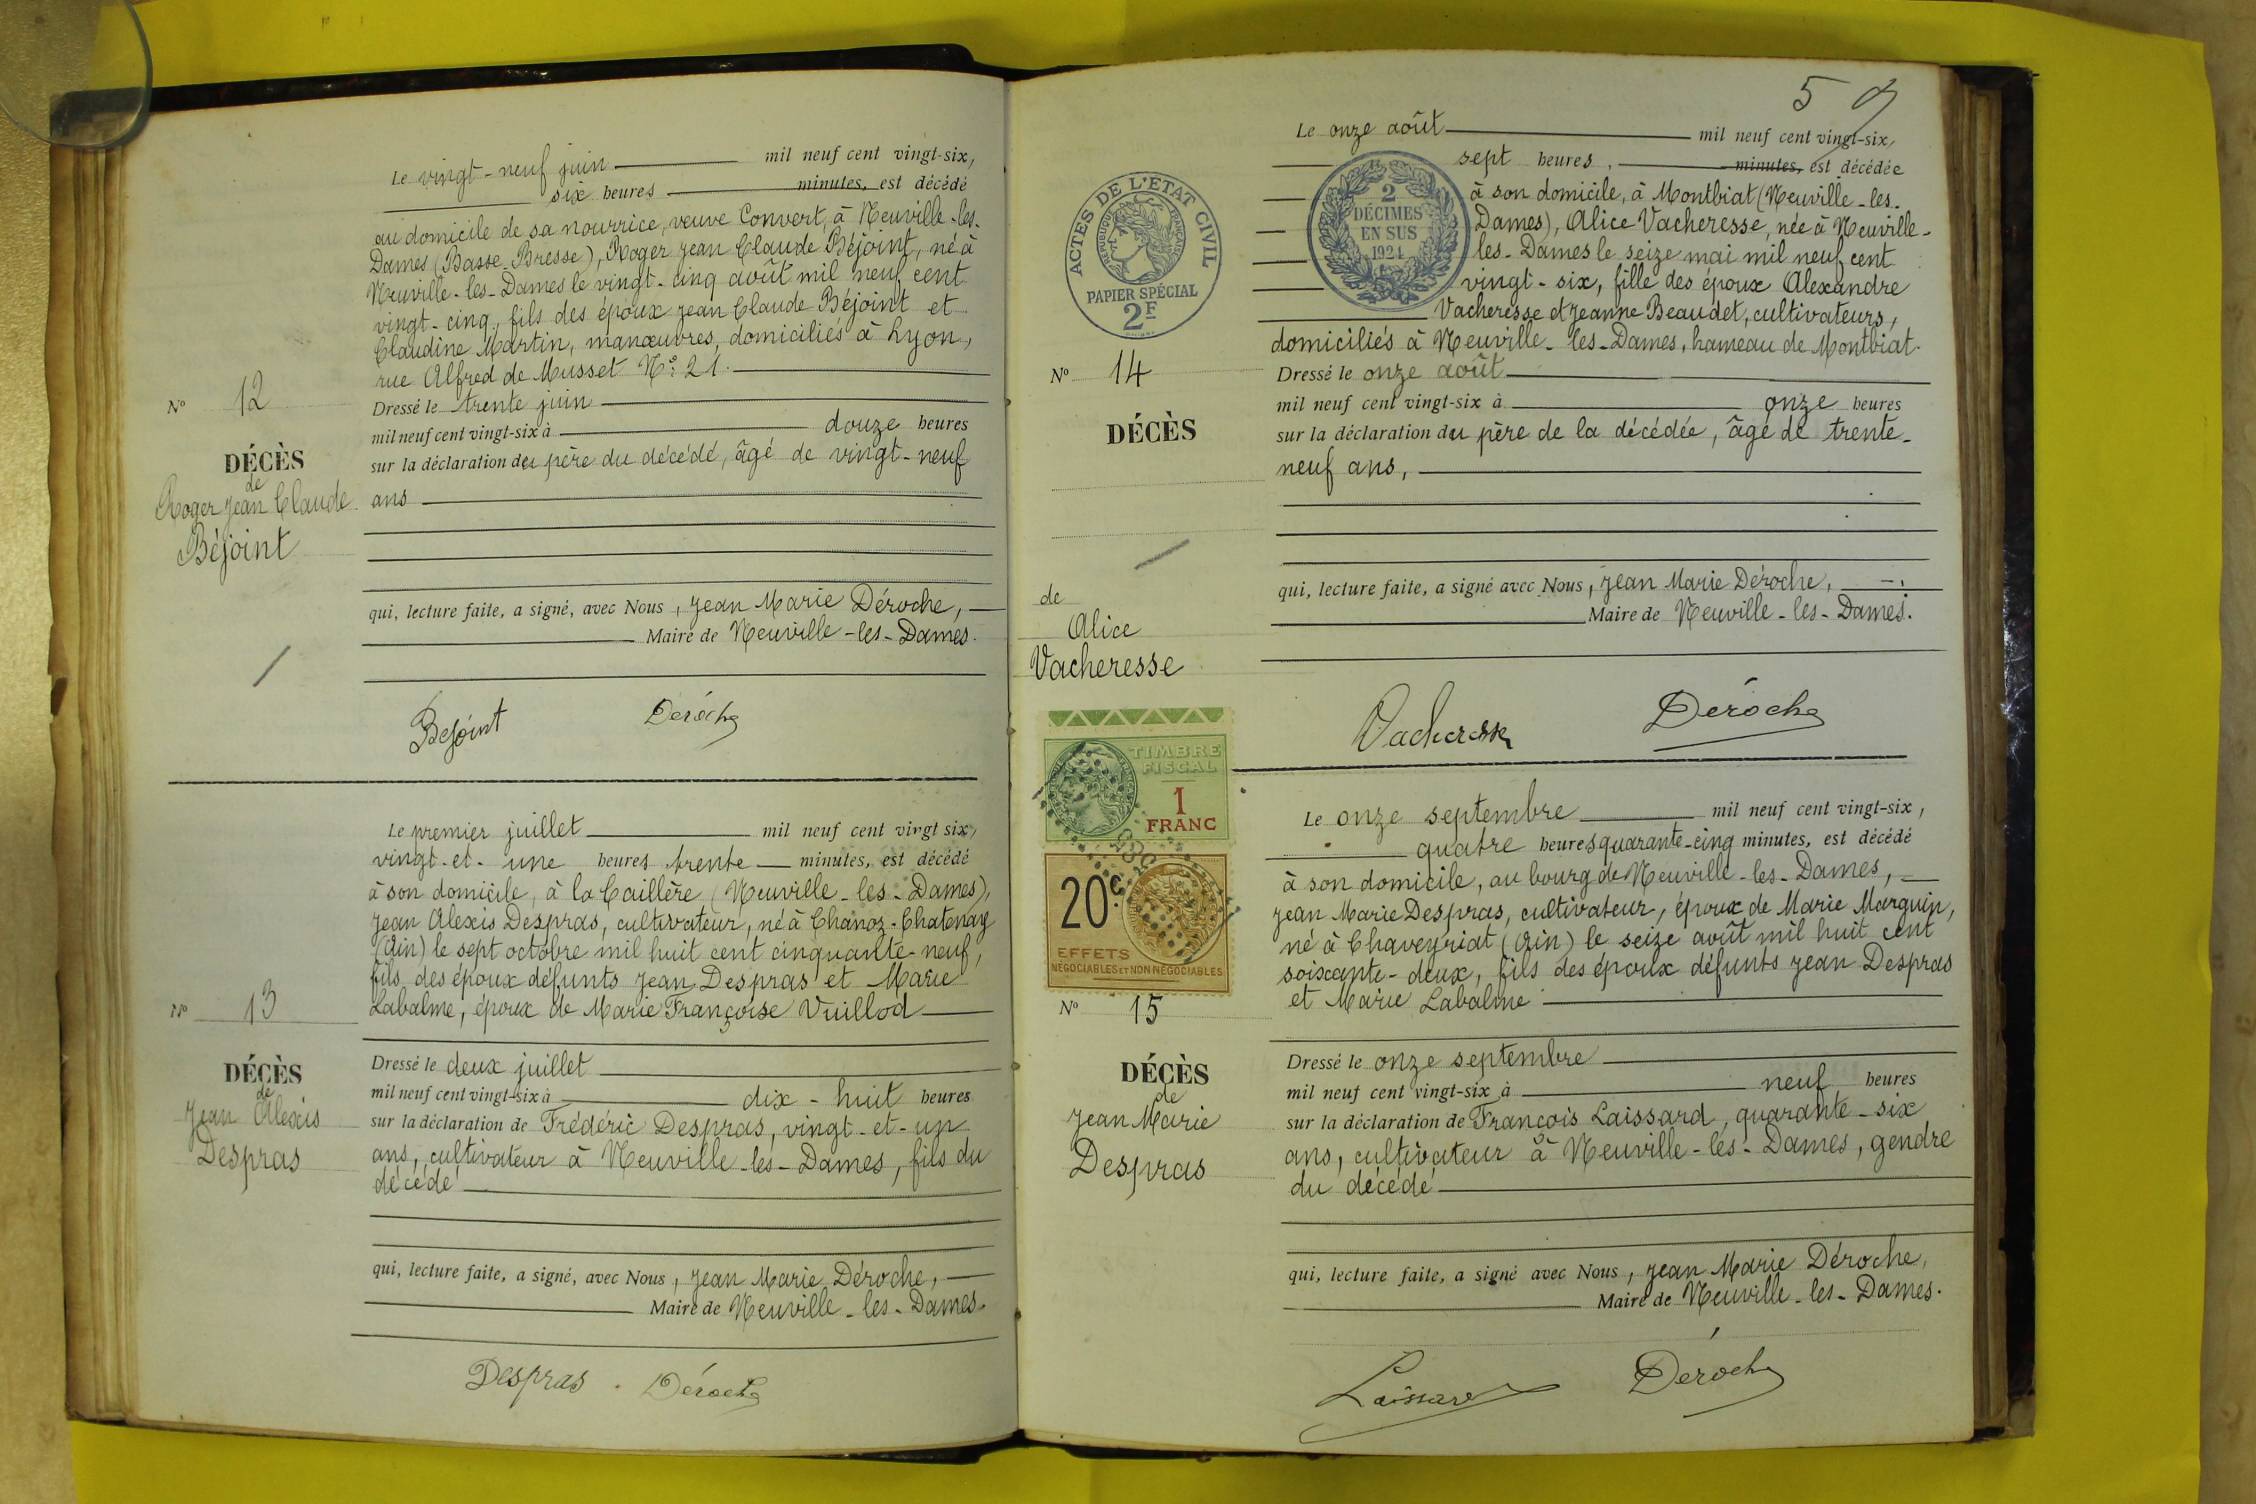 Le vingt-neuf juin mil neuf cent vingt-six,
six heures minutes, est décédé
au domicile de sa nourrice, veuve Convert, à Neuville-les-
Dames (Basse-Bresse), Roger Jean Claude Béjoint, né à
Neuville-les-Dames le vingt-cinq août mil neuf cent
vingt-cinq, fils des époux Jean Claude Béjoint et
Claudine Martin, manœuvres, domiciliés à Lyon,
rue Alfred de Musset N° 21.
N° 12
DÉCÈS
de
Roger Jean Claude
Béjoint
Dressé le trente juin
mil neuf cent vingt-six à douze heures
sur la déclaration du père du décédé, âgé de vingt-neuf
ans
qui, lecture faite, a signé, avec Nous, Jean Marie Déroche,
Maire de Neuville-les-Dames.
Béjoint Déroche
Le premier juillet mil neuf cent vingt six,
vingt-et-une heures trente minutes, est décédé
à son domicile, à la Caillère (Neuville-les-Dames),
Jean Alexis Despras, cultivateur, né à Chanoz-Chatenay
(Ain) le sept octobre mil huit cent cinquante-neuf,
fils des époux défunts Jean Despras et Marie
Labalme, époux de Marie Françoise Vuillod
N° 13
DÉCÈS
de
Jean Alexis
Despras
Dressé le deux juillet
mil neuf cent vingt-six à dix-huit heures
sur la déclaration de Frédéric Despras, vingt-et-un
ans, cultivateur à Neuville-les-Dames, fils du
décédé
qui, lecture faite, a signé, avec Nous, Jean Marie Déroche,
Maire de Neuville-les-Dames.
Despras Déroche
5
ACTES DE L'ÉTAT CIVIL
RÉPUBLIQUE FRANÇAISE
PAPIER SPÉCIAL
2F
2
DÉCIMES
EN SUS
1924
Le onze août mil neuf cent vingt-six,
sept heures, minutes, est décédée
à son domicile, à Montbiat (Neuville-les-
Dames), Alice Vacheresse, née à Neuville-
les-Dames le seize mai mil neuf cent
vingt-six, fille des époux Alexandre
Vacheresse et Jeanne Beaudet, cultivateurs,
domiciliés à Neuville-les-Dames, hameau de Montbiat.
N° 14
DÉCÈS
de
Alice
Vacheresse
Dressé le onze août
mil neuf cent vingt-six à onze heures
sur la déclaration du père de la décédée, âgé de trente-
neuf ans,
qui, lecture faite, a signé avec Nous, Jean Marie Déroche,
Maire de Neuville-les-Dames.
Vacheresse Déroche
TIMBRE
FISCAL
1
FRANC
20c
EFFETS
NÉGOCIABLES ET NON NÉGOCIABLES
Le onze septembre mil neuf cent vingt-six,
quatre heures quarante-cinq minutes, est décédé
à son domicile, au bourg de Neuville-les-Dames,
Jean Marie Despras, cultivateur, époux de Marie Marguin,
né à Chaveyriat (Ain) le seize août mil huit cent
soixante-deux, fils des époux défunts Jean Despras
et Marie Labalme
N° 15
DÉCÈS
de
Jean Marie
Despras
Dressé le onze septembre
mil neuf cent vingt-six à neuf heures
sur la déclaration de François Laissard, quarante-six
ans, cultivateur à Neuville-les-Dames, gendre
du décédé
qui, lecture faite, a signé avec Nous, Jean Marie Déroche,
Maire de Neuville-les-Dames.
Laissard Déroche